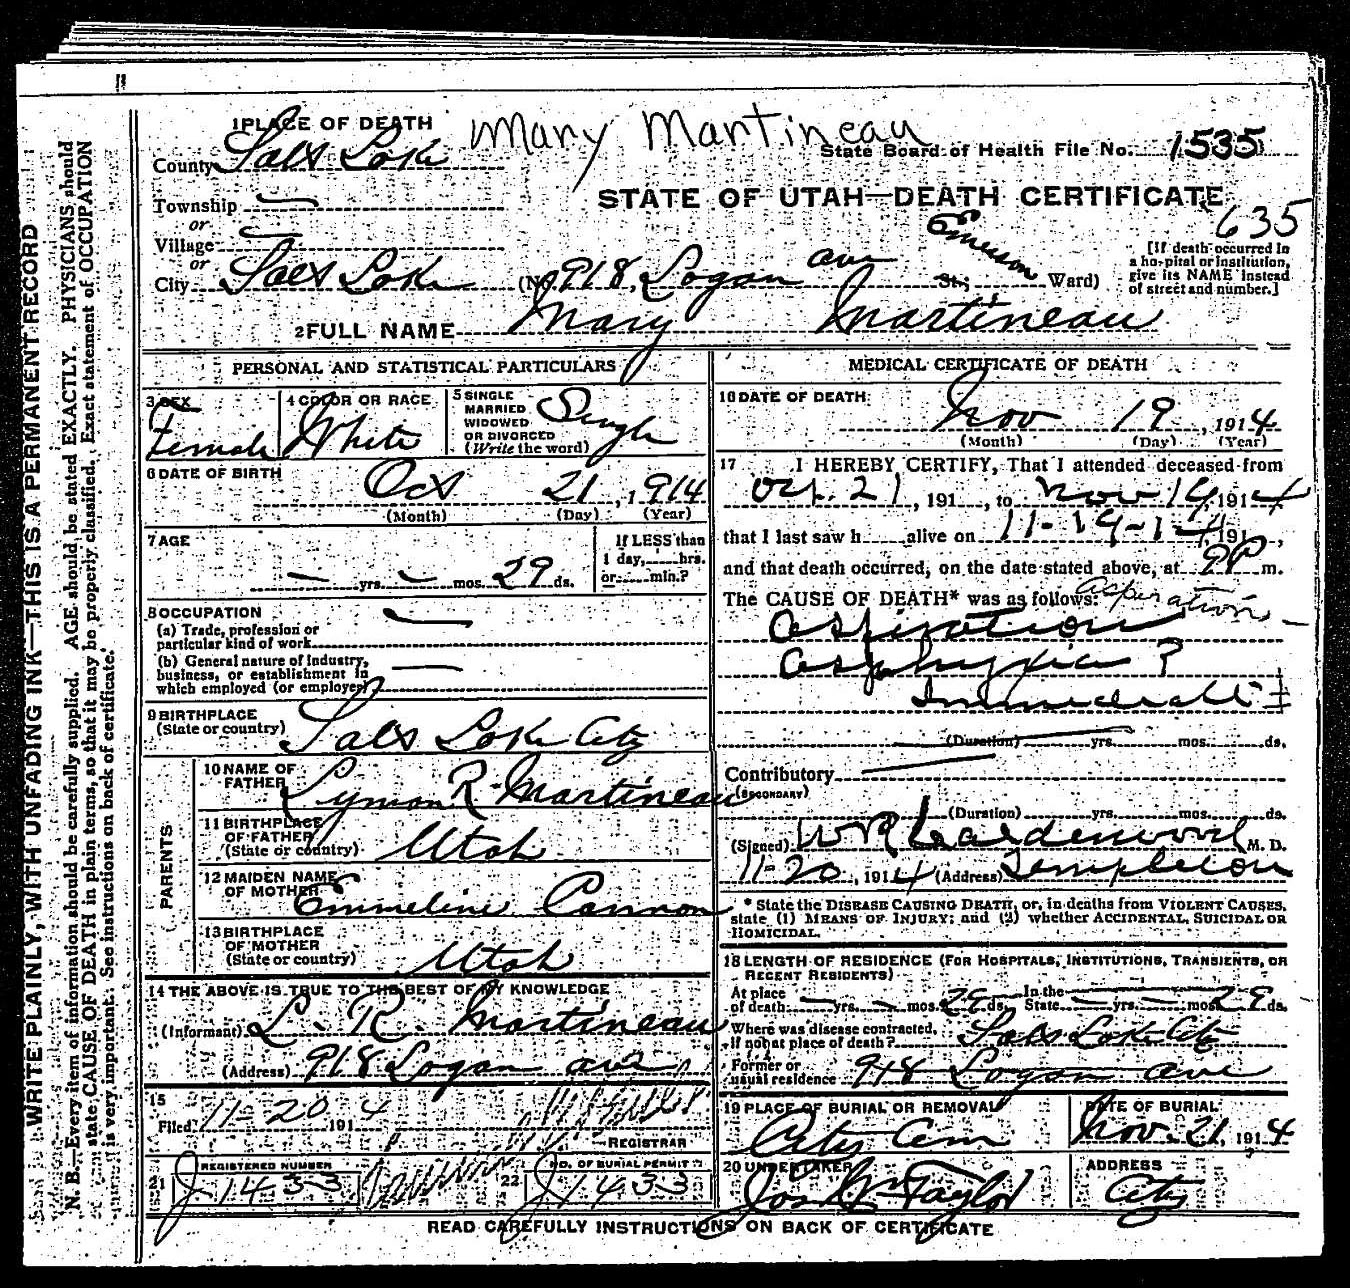 WRITE PLAINLY, WITH UNFADING INK—THIS IS A PERMANENT RECORD
N. B.—Every item of information should be carefully supplied. AGE should be stated EXACTLY. PHYSICIANS should
state CAUSE OF DEATH in plain terms, so that it may be properly classified. Exact statement of OCCUPATION
is very important. See instructions on back of certificate.
Mary Martineau
1 PLACE OF DEATH
County Salt Lake
State Board of Health File No. 1535
Township —
STATE OF UTAH—DEATH CERTIFICATE
635
or
Village —
or
City Salt Lake (No. 918, Logan ave St.; Emerson Ward)
[If death occurred in
a hospital or institution,
give its NAME instead
of street and number.]
2 FULL NAME Mary Martineau
PERSONAL AND STATISTICAL PARTICULARS
3 SEX
Female
4 COLOR OR RACE
White
5 SINGLE
MARRIED
WIDOWED
OR DIVORCED
(Write the word)
Single
6 DATE OF BIRTH
Oct 21, 1914
(Month) (Day) (Year)
7 AGE
— yrs. — mos. 29 ds.
If LESS than
1 day, hrs.
or min.?
8 OCCUPATION
(a) Trade, profession or
particular kind of work —
(b) General nature of industry,
business, or establishment in
which employed (or employer) —
9 BIRTHPLACE
(State or country)
Salt Lake City
PARENTS
10 NAME OF
FATHER
Lyman R. Martineau
11 BIRTHPLACE
OF FATHER
(State or country)
Utah
12 MAIDEN NAME
OF MOTHER
Emmeline Cannon
13 BIRTHPLACE
OF MOTHER
(State or country)
Utah
14 THE ABOVE IS TRUE TO THE BEST OF MY KNOWLEDGE
(Informant) L. R. Martineau
(Address) 918 Logan ave
15
Filed 11-20 1914
REGISTRAR
21 REGISTERED NUMBER
J 1433
22 NO. OF BURIAL PERMIT
J 1433
MEDICAL CERTIFICATE OF DEATH
16 DATE OF DEATH
Nov 19, 1914
(Month) (Day) (Year)
17 I HEREBY CERTIFY, That I attended deceased from
Oct. 21, 191 , to Nov 19, 1914
that I last saw h alive on 11-19-14, 191 ,
and that death occurred, on the date stated above, at 9 P m.
The CAUSE OF DEATH* was as follows:
aspiration
Aspiration
asphyxia ?
Immediate
(Duration) yrs. mos. ds.
Contributory
(SECONDARY)
(Duration) yrs. mos. ds.
(Signed) W R Calderwood M. D.
11-20, 1914 (Address) Templeton
* State the DISEASE CAUSING DEATH, or, in deaths from VIOLENT CAUSES,
state (1) MEANS OF INJURY; and (2) whether ACCIDENTAL, SUICIDAL OR
HOMICIDAL.
18 LENGTH OF RESIDENCE (FOR HOSPITALS, INSTITUTIONS, TRANSIENTS, OR
RECENT RESIDENTS)
At place
of death — yrs. — mos. 29 ds.
In the
State — yrs. — mos. 29 ds.
Where was disease contracted,
if not at place of death? Salt Lake City
Former or
usual residence 918 Logan ave
19 PLACE OF BURIAL OR REMOVAL
City Cem
DATE OF BURIAL
Nov. 21, 1914
20 UNDERTAKER
Jos Wm Taylor
ADDRESS
City
READ CAREFULLY INSTRUCTIONS ON BACK OF CERTIFICATE